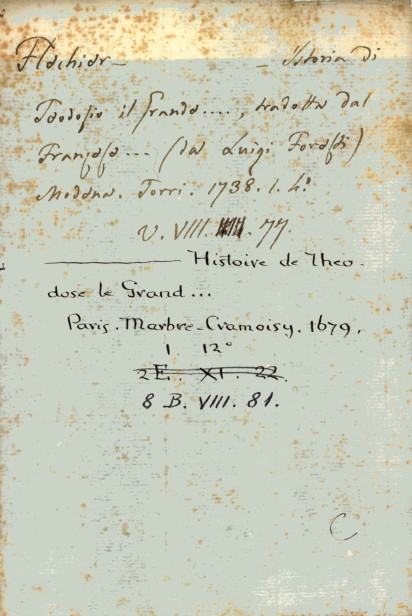 Fléchier — — Istoria di
Teodosio il Grande...., tradotta dal
Francese... (da Luigi Foresti)
Modena. Torri. 1738. 1. 4°
V. VIII. 77.
——— Histoire de Theo.
dose le Grand...
Paris. Marbre-Cramoisy. 1679.
1 12°
2 E. XI. 22.
8 B. VIII. 81.
C